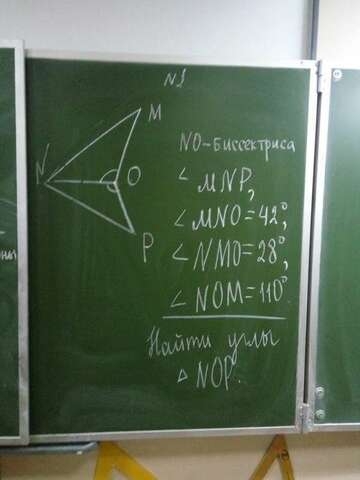 №1
M
N
O
P
NO-биссектриса
∠MNP,
∠MNO=42°,
∠NMO=28°,
∠NOM=110°
Найти углы
△NOP.